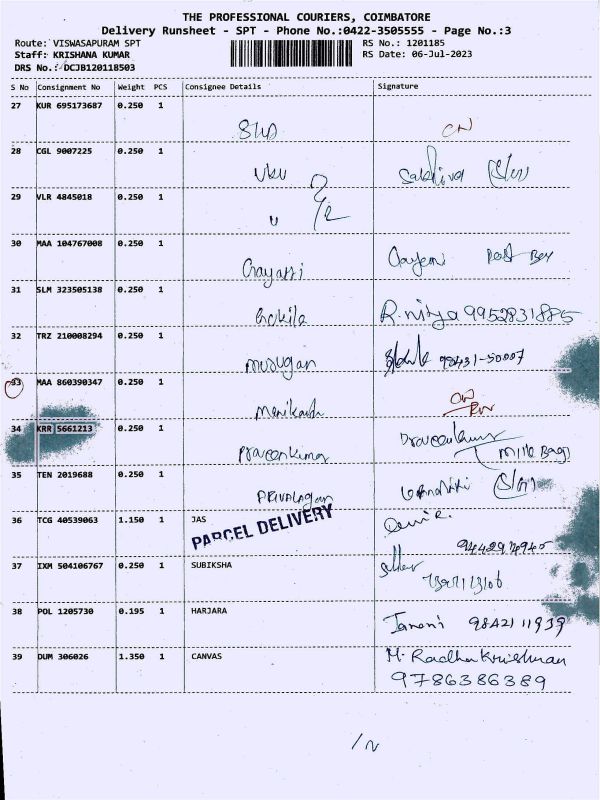 THE PROFESSIONAL COURIERS, COIMBATORE
Delivery Runsheet - SPT - Phone No.:0422-3505555 - Page No.:3
Route: VISWASAPURAM SPT RS No.: 1201185
Staff: KRISHANA KUMAR RS Date: 06-Jul-2023
DRS No.: DCJB120118503
S No Consignment No Weight PCS Consignee Details Signature
27 KUR 695173687 0.250 1
28 CGL 9007225 0.250 1
29 VLR 4845018 0.250 1
30 MAA 104767008 0.250 1
Gayatri Post Box
31 SLM 323505138 0.250 1
Gokila R. nitya 9952831885
32 TRZ 210008294 0.250 1
Murugan 98431-50007
33 MAA 860390347 0.250 1
34 KRR 5661213 0.250 1
Praveenkumar Praveenkumar
Milk Bag
35 TEN 2019688 0.250 1
36 TCG 40539063 1.150 1 JAS
PARCEL DELIVERY
37 IXM 504106767 0.250 1 SUBIKSHA
38 POL 1205730 0.195 1 HARJARA
Janani 9842111939
39 DUM 306026 1.350 1 CANVAS
M. Radha Krishnan
9786386389